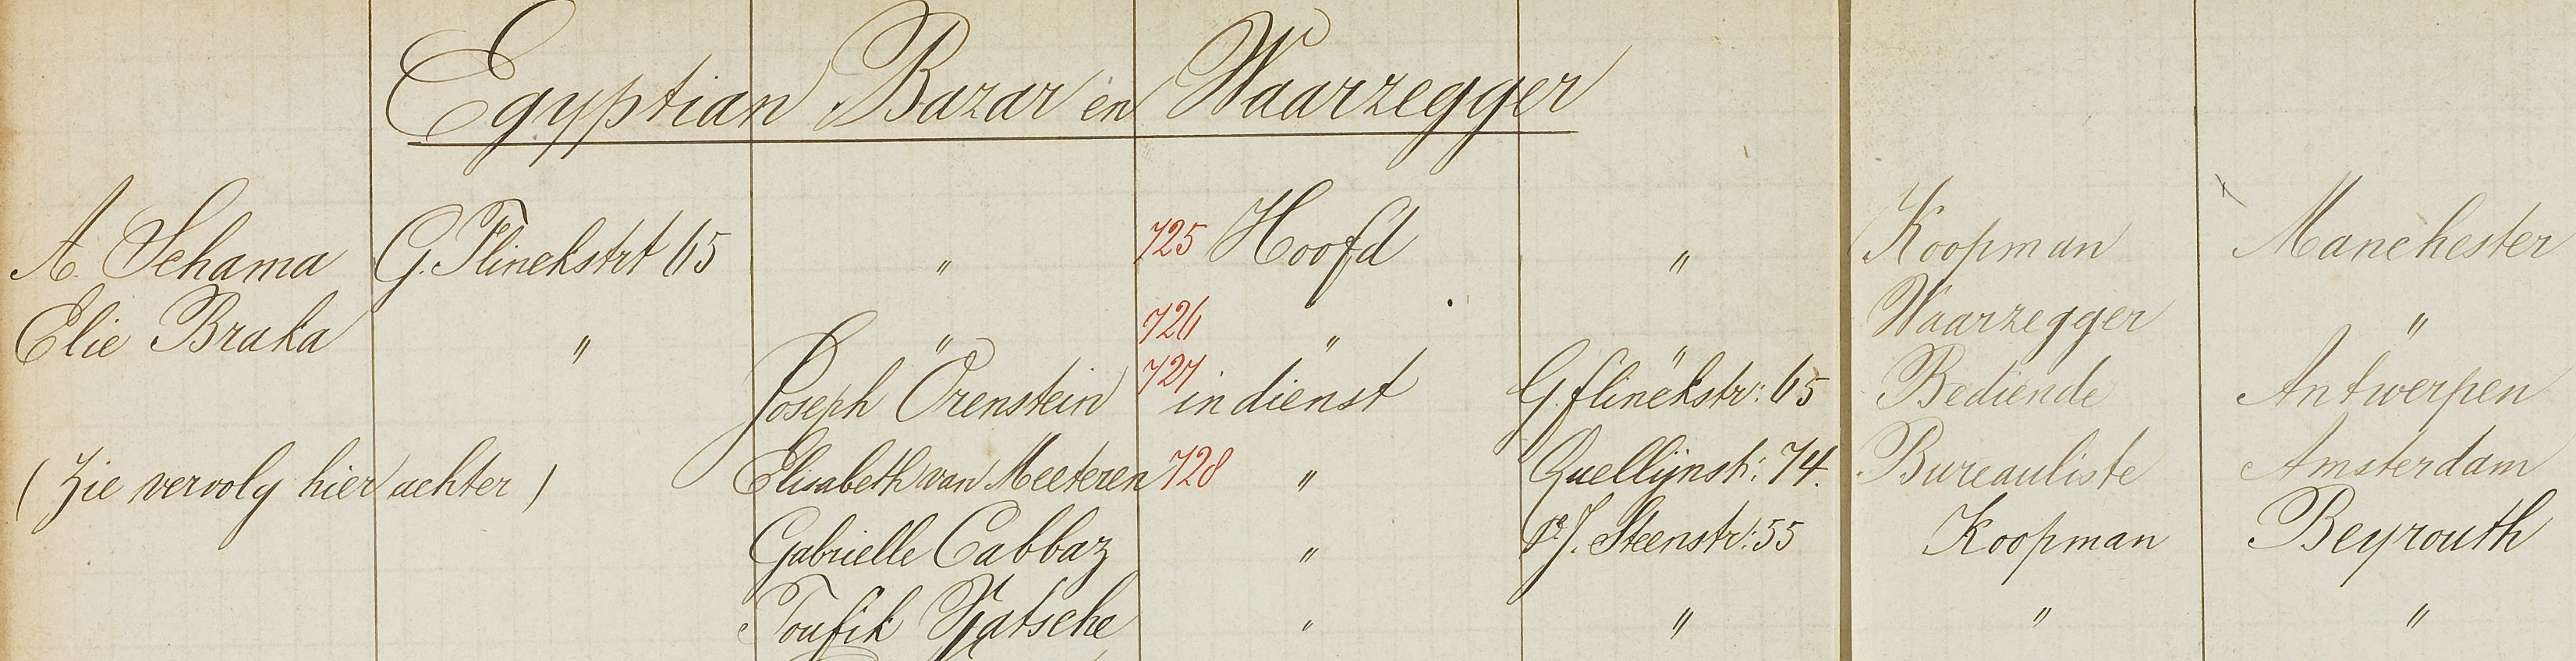 Egyptian Bazar en Waarzegger
A. Schama G. Flinckstrt 65 " 725 Hoofd " Koopman Manchester
Elie Braka " " 726 " " Waarzegger "
Joseph Orenstein 727 in dienst G. flinckstr: 65 Bediende Antwerpen
(Zie vervolg hier achter) Elisabeth van Meeteren 728 " Quellijnstr: 74. Bureauliste Amsterdam
Gabrielle Cabbaz " 1e J. Steenstr: 55 Koopman Beyrouth
Toufik " " " "